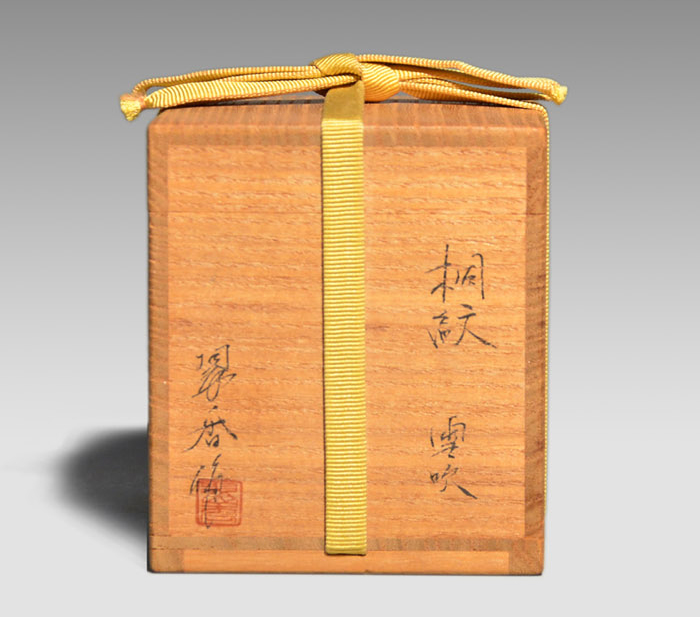 桐紋 雪吹
翠香作